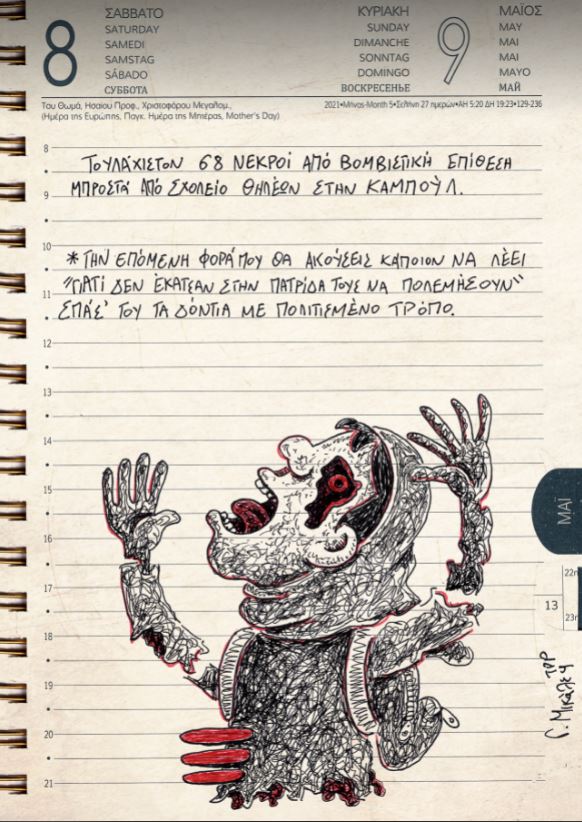 8
ΣΑΒΒΑΤΟ
SATURDAY
SAMEDI
SAMSTAG
SÁBADO
СУББОТА
ΚΥΡΙΑΚΗ
SUNDAY
DIMANCHE
SONNTAG
DOMINGO
ВОСКРЕСЕНЬЕ
9
ΜΑΪΟΣ
MAY
MAI
MAI
MAYO
МАЙ
Του Θωμά, Ησαϊου Προφ., Χριστοφόρου Μεγαλομ.,
(Ημέρα της Ευρώπης, Παγκ. Ημέρα της Μητέρας, Mother's Day)
2021•Μήνας-Month 5•Σελήνη 27 ημερών•ΑΗ 5:20 ΔΗ 19:23•129-236
8
ΤΟΥΛΑΧΙΣΤΟΝ 68 ΝΕΚΡΟΙ ΑΠΟ ΒΟΜΒΙΣΤΙΚΗ ΕΠΙΘΕΣΗ
9 ΜΠΡΟΣΤΑ ΑΠΟ ΣΧΟΛΕΙΟ ΘΗΛΕΩΝ ΣΤΗΝ ΚΑΜΠΟΥΛ.
10
* ΤΗΝ ΕΠΟΜΕΝΗ ΦΟΡΑ ΠΟΥ ΘΑ ΑΚΟΥΣΕΙΣ ΚΑΠΟΙΟΝ ΝΑ ΛΕΕΙ
11 "ΓΙΑΤΙ ΔΕΝ ΕΚΑΤΣΑΝ ΣΤΗΝ ΠΑΤΡΙΔΑ ΤΟΥΣ ΝΑ ΠΟΛΕΜΗΣΟΥΝ"
ΣΠΑΣ' ΤΟΥ ΤΑ ΔΟΝΤΙΑ ΜΕ ΠΟΛΙΤΙΣΜΕΝΟ ΤΡΟΠΟ.
12
13
14
15
16
17
18
19
20
21
ΜΑΪ
22η
13
23η